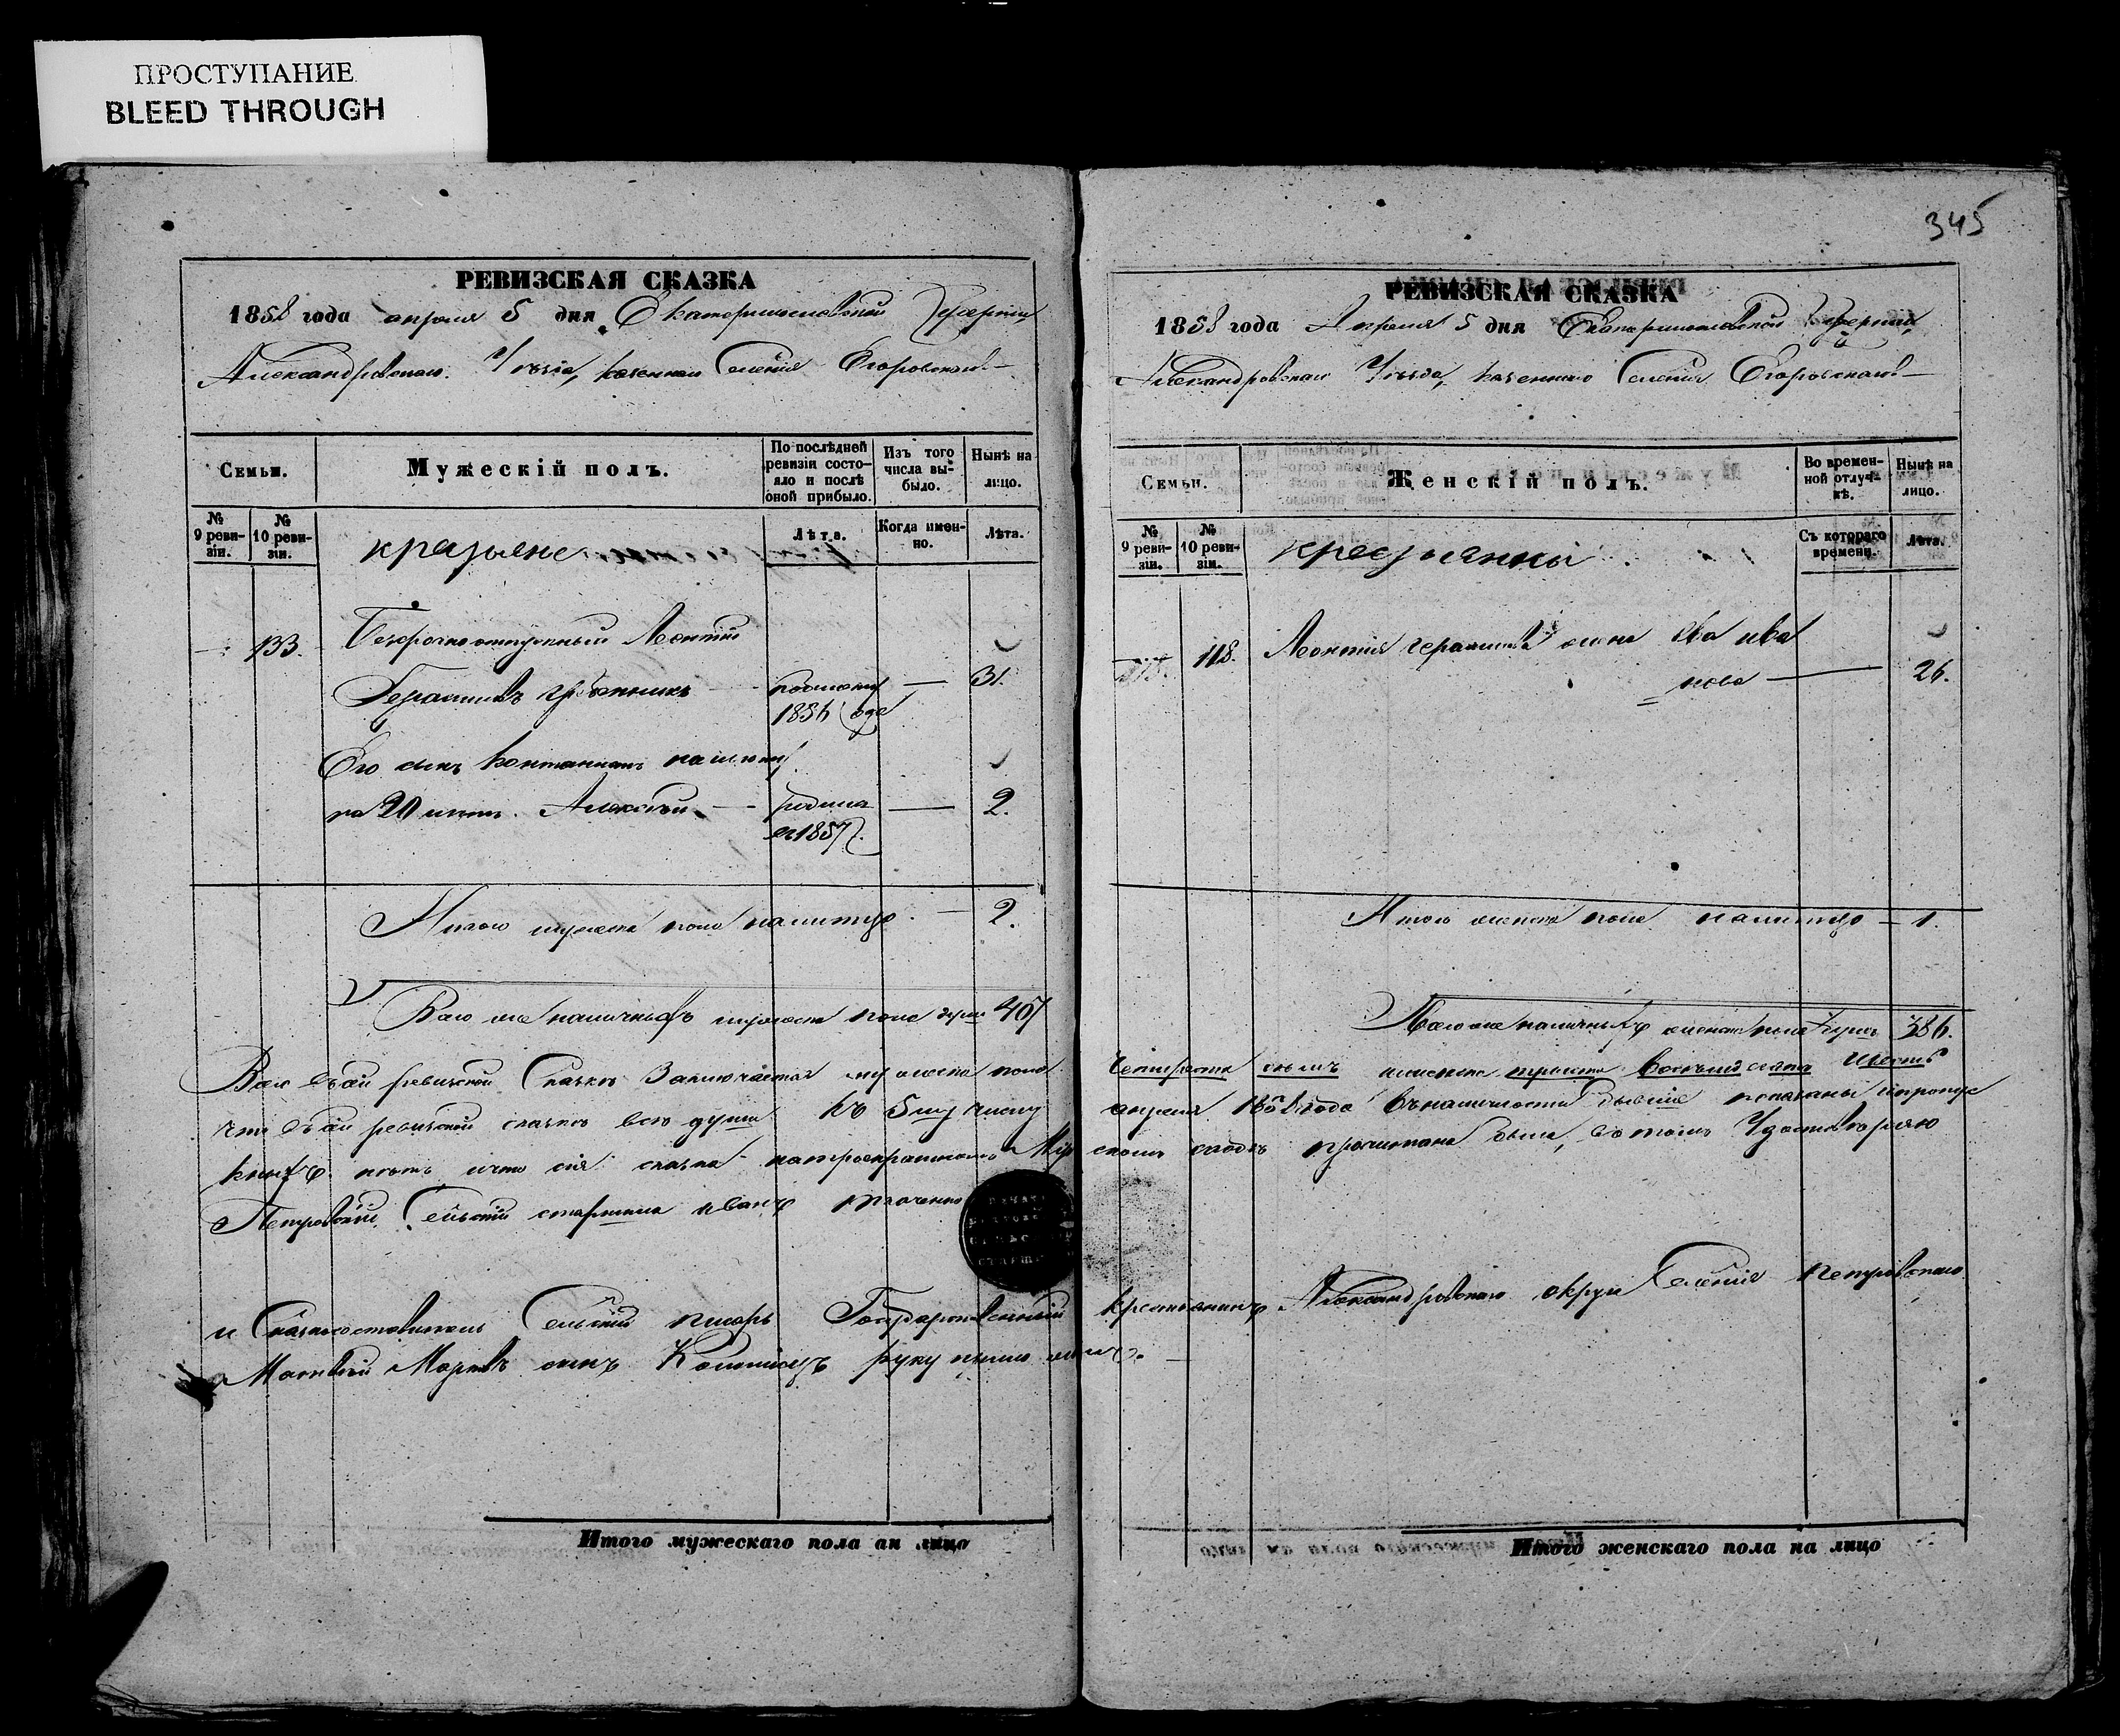 ПРОСТУПАНИЕ
BLEED THROUGH
РЕВИЗСКАЯ СКАЗКА
1858 года апреля 5 дня Екатеринославской Губернии
Александровскаго Уѣзда, казеннаго Селенія Егоровскаго
Семьи.
Мужескій полъ.
По послѣдней ревизіи состояло и послѣ оной прибыло.
Изъ того числа выбыло.
Нынѣ на лицо.
№ 9 ревизіи.
№ 10 ревизіи.
крестьяне
Лѣта.
Когда именно.
Лѣта.
133. Безсрочноотпускный Леонтій
Герасимовъ — 31.
1856 года
Его сынъ
Алексѣй — 2.
1857
Итого мужеска пола налицо — 2.
Всего же наличныхъ мужеска пола душъ 407
Всего въ сей ревизской Сказкѣ Заключается мужеска пола
что въ сей ревизской сказкѣ всѣ души къ 5му числу
нѣтъ и что сія сказка на Мір
Петровскій Сельскій старшина Иванъ
и Сказкосоставитель Сельскій писарь Государственный
Матвѣй Марковъ сынъ Коломіецъ руку
Итого мужескаго пола ан лицо
345
РЕВИЗСКАЯ СКАЗКА
1858 года Апреля 5 дня Екатеринославской Губерніи
Александровскаго Уѣзда, казеннаго Селенія Егоровскаго
Семьи.
Женскій полъ.
Во временной отлучкѣ.
Нынѣ на лицо.
№ 9 ревизіи.
№ 10 ревизіи.
крестьянки
Съ котораго времени.
Лѣта.
118. Леонтія Герасимова жена Ева Ива
нова — 26.
Итого женска пола налицо — 1.
Всего же наличныхъ женска пола душъ 386.
четыреста семь женска триста восемьдесятъ шесть
апреля 1858 года въ наличности бывшіе показаны и пропус
скомъ сходѣ прочитана была, въ томъ Удостовѣряю
крестьянинъ Александровскаго округа Селенія Петровскаго
Итого женскаго пола на лицо